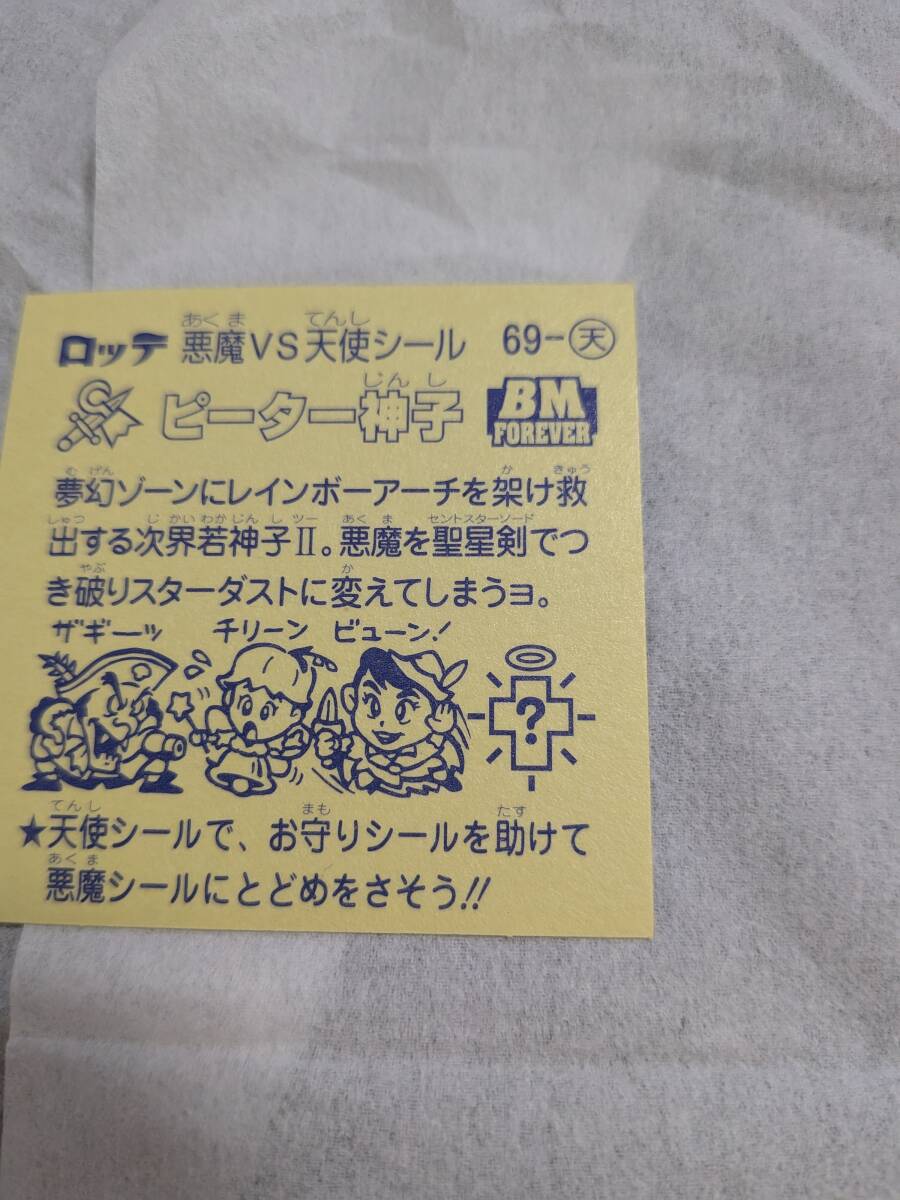 ロッテ 悪魔VS天使シール 69-天
あくま てんし
ピーター神子 BM FOREVER
じんし
夢幻ゾーンにレインボーアーチを架け救
むげん か きゅう
出する次界若神子Ⅱ。悪魔を聖星剣でつ
しゅつ じかいわかじんしツー あくま セントスターソード
き破りスターダストに変えてしまうヨ。
やぶ か
ザギーッ チリーン ビューン!
?
★天使シールで、お守りシールを助けて
てんし まも たす
悪魔シールにとどめをさそう!!
あくま